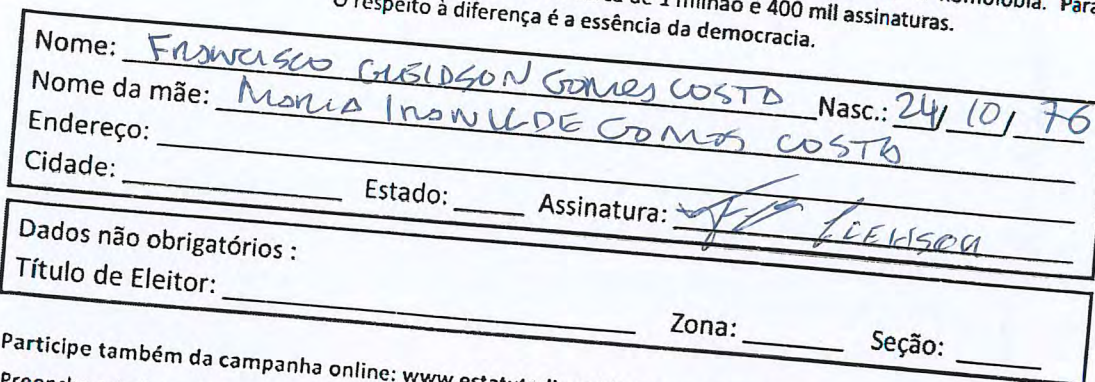 1 milhão e 400 mil assinaturas.
O respeito à diferença é a essência da democracia.
Nome: Francisco Gleidson Gomes Costa Nasc.: 24/10/76
Nome da mãe: Maria Ironilde Gomes Costa
Endereço:
Cidade: Estado: Assinatura:
Dados não obrigatórios :
Título de Eleitor:
Zona: Seção:
Participe também da campanha online: